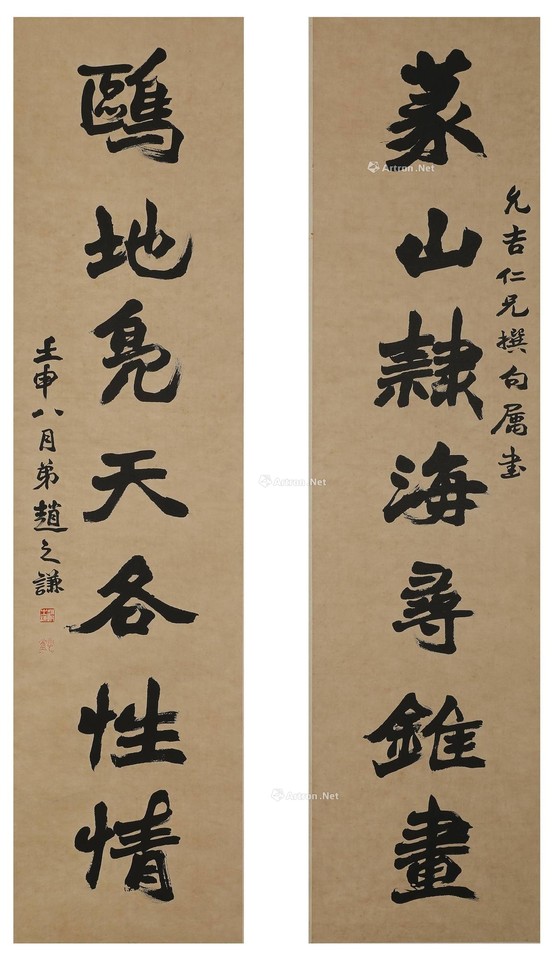 允吉仁兄撰句属书
篆山隸海尋錐畫
鷗地鳧天各性情
壬申八月弟趙之謙
Artron.Net
Artron.Net
Artron.Net